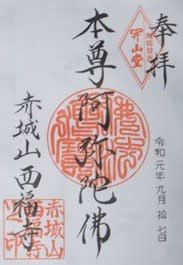 奉拝
開山堂
本尊阿弥陀佛
令和元年九月十七日
赤城山西福寺
赤城山